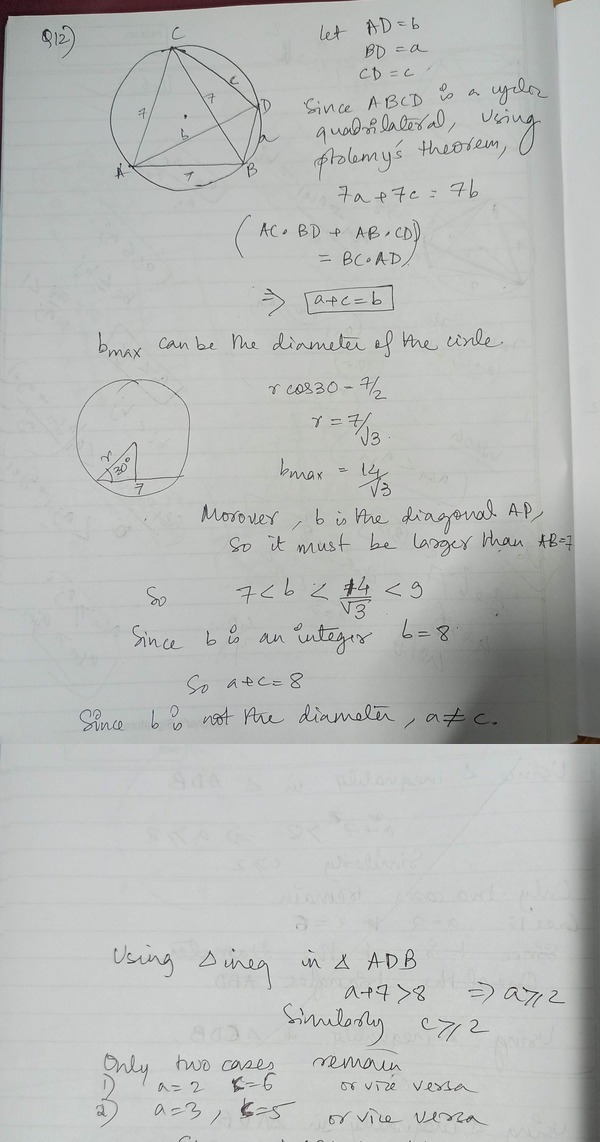 Q12)
C
D
A
B
7
7
7
b
c
a
let AD = b
BD = a
CD = c
Since ABCD is a cyclic
quadrilateral, using
ptolemy's theorem,
7a + 7c = 7b
(AC · BD + AB · CD)
= BC · AD
⇒ a+c=b
bmax can be the diameter of the circle.
r
30°
7
r cos30 - 7/2
r = 7/√3
bmax = 14/√3
Morover, b is the diagonal AD,
so it must be larger than AB=7
So 7 < b < 14/√3 < 9
Since b is an integer b = 8
So a+c=8
Since b is not the diameter, a ≠ c.
Using Δ ineq in Δ ADB
a+7 > 8 ⇒ a ⩾ 2
Similarly c ⩾ 2
Only two cases remain
1) a=2 c=6 or vice versa
2) a=3, c=5 or vice versa